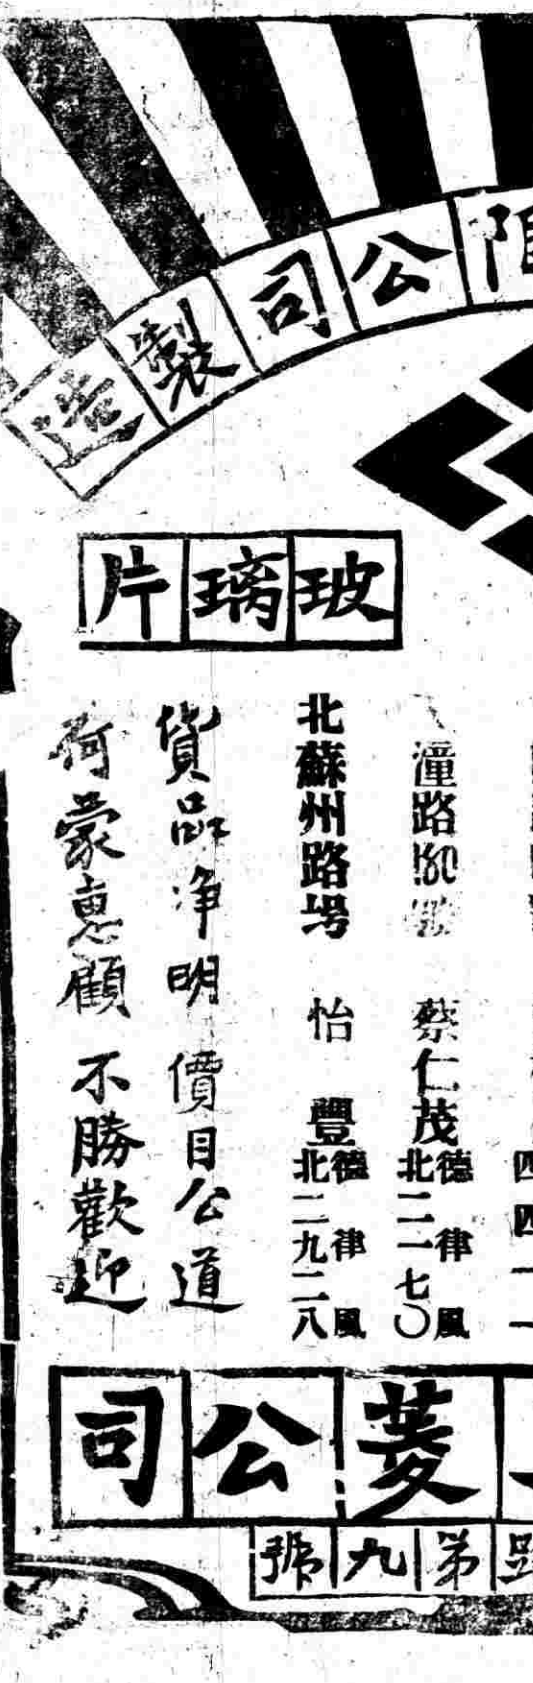 限公司製造
玻璃片
四四一一
潼路180號 蔡仁茂 德律風 北二一七〇
北蘇州路 怡豐 德律風 北二九二八
貨品净明 價目公道
荷蒙惠顧 不勝歡迎
菱公司
路第九號